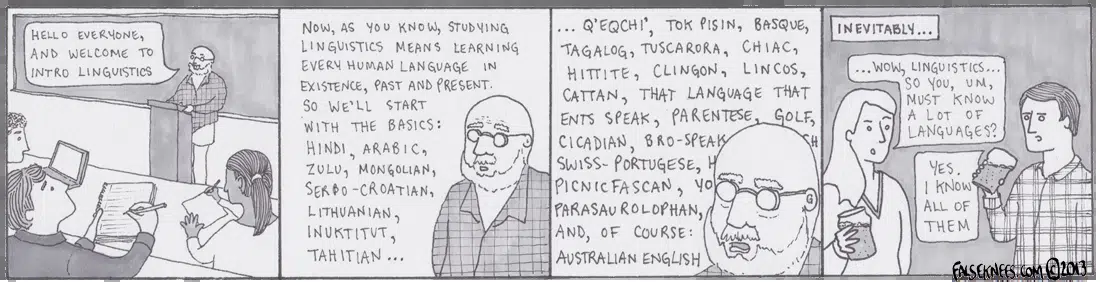 HELLO EVERYONE,
AND WELCOME TO
INTRO LINGUISTICS
NOW, AS YOU KNOW, STUDYING
LINGUISTICS MEANS LEARNING
EVERY HUMAN LANGUAGE IN
EXISTENCE, PAST AND PRESENT.
SO WE'LL START
WITH THE BASICS:
HINDI, ARABIC,
ZULU, MONGOLIAN,
SERBO-CROATIAN,
LITHUANIAN,
INUKTITUT,
TAHITIAN...
...Q'EQCHI', TOK PISIN, BASQUE,
TAGALOG, TUSCARORA, CHIAC,
HITTITE, CLINGON, LINCOS,
CATTAN, THAT LANGUAGE THAT
ENTS SPEAK, PARENTESE, GOLF,
CICADIAN, BRO-SPEAK
SWISS-PORTUGESE,
PICNICFASCAN, YO
PARASAUROLOPHAN,
AND, OF COURSE:
AUSTRALIAN ENGLISH
INEVITABLY...
...WOW, LINGUISTICS...
SO YOU, UM,
MUST KNOW
A LOT OF
LANGUAGES?
YES.
I KNOW
ALL OF
THEM
FALSEKNEES.COM ©2013